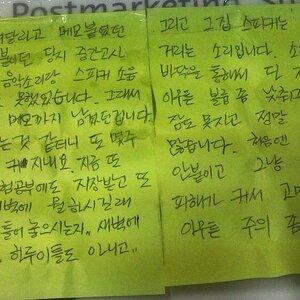 Postmarketing S
려달라고 메모붙였던
붙이던 당시 중간고사
음악소리랑 스피커 소음
못했었습니다. 그래서
메모까지 남겼던겁니다
는것 같더니 또 몇주
커지네요. 지금 또
험공부에도 지장받고 또
벽에 뭘 하시길래
틀어 놓으시는지.. 새벽에
하루이틀도 아니고..
그리고 그집 스피커는
거리는 소리입니다.
바닥을 통해서 다
아무튼 볼륨 좀 낮춰
잠도 못자고 정말
많습니다. 처음엔
안붙이고 그냥
피해가 커서
아무튼 주의 좀